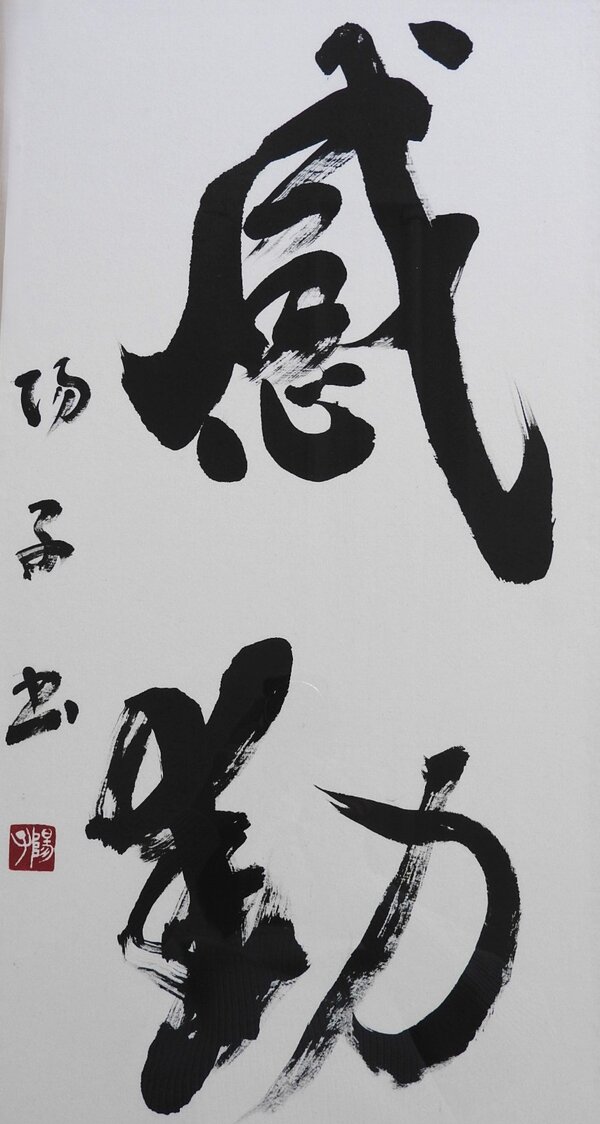 感動
陽子書
陽子